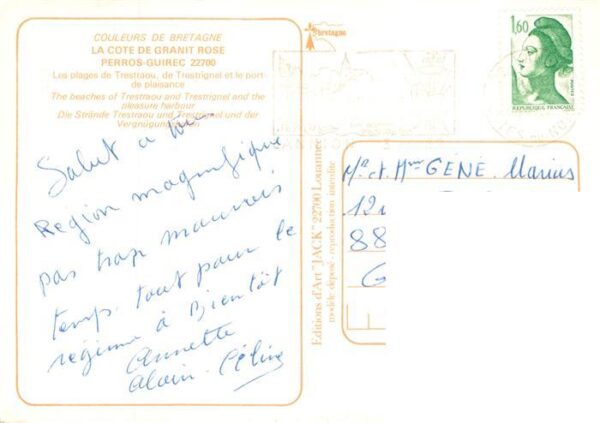 COULEURS DE BRETAGNE
LA COTE DE GRANIT ROSE
PERROS-GUIREC 22700
Les plages de Trestraou, de Trestrignel et le port
de plaisance
The beaches of Trestraou and Trestrignel and the
pleasure harbour
Die Strände Trestraou und Trestrignel und der
Vergnügungshafen
Salut a
Région magnifique
pas trop mauvais
temps. tout pour le
régime à Bientôt
Annette
Alain. Céline
bretagne
1,60
REPUBLIQUE FRANÇAISE
Editions d'Art "JACK" 22700 Louannec
modèle déposé - reproduction interdite
Mr et Mme GENE. Marius
12
88
G
F